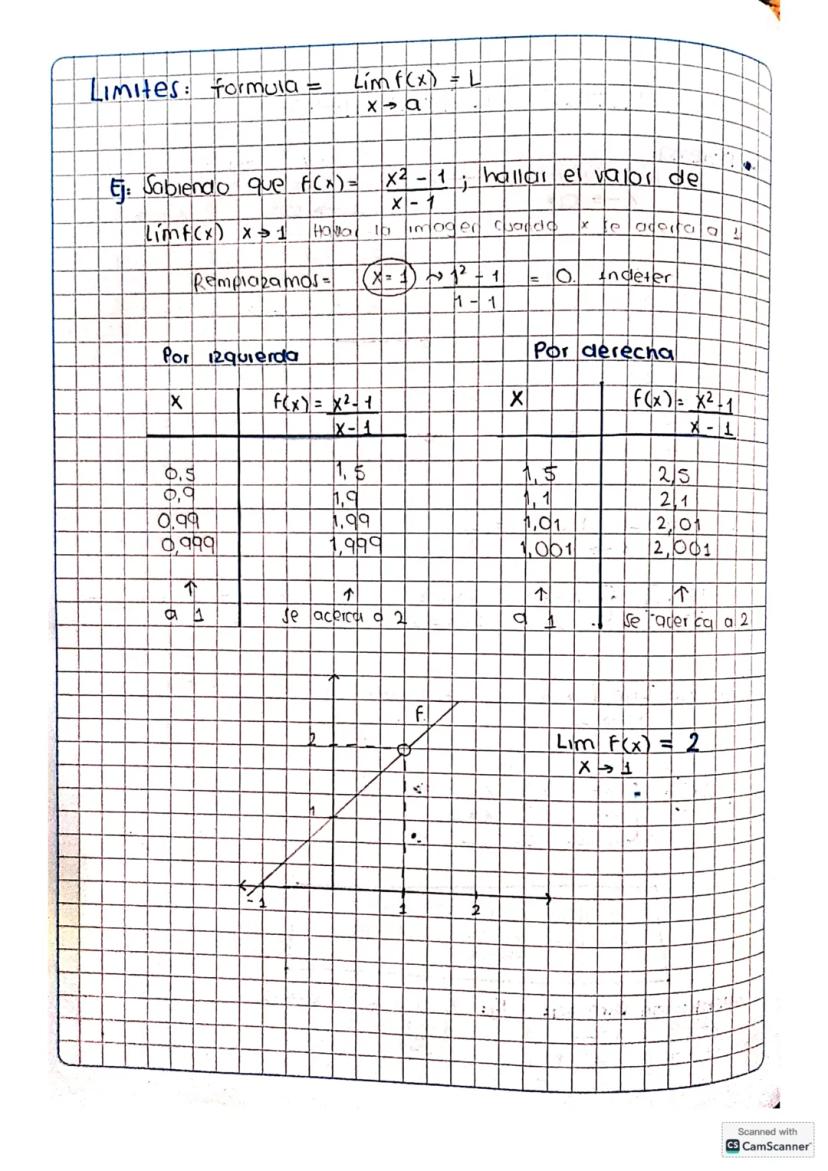 Límites: formula = Lím f(x) = L
x → a
Ej: Sabiendo que f(x) = x² - 1 ; hallar el valor de
x - 1
Límf(x) x → 1 Hallar la imagen cuando x se acerca a 1
Remplazamos = (x = 1) ~> 1² - 1 = 0. Indeter
1 - 1
Por izquierda Por derecha
x f(x) = x² - 1 x f(x) = x² - 1
x - 1 x - 1
0,5 1,5 1,5 2,5
0,9 1,9 1,1 2,1
0,99 1,99 1,01 2,01
0,999 1,999 1,001 2,001
↑ ↑ ↑ ↑
a 1 se acerca a 2 a 1 se acerca a 2
f
2 Lim f(x) = 2
x → 1
1
-1 1 2
Scanned with
CS CamScanner